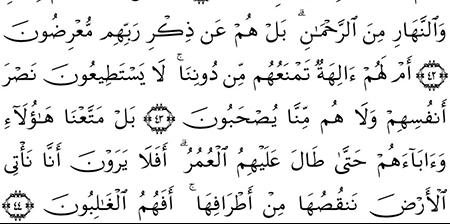 وَٱلنَّهَارِ مِنَ ٱلرَّحْمَـٰنِ ۗ بَلْ هُمْ عَن ذِكْرِ رَبِّهِم مُّعْرِضُونَ
﴿٤٢﴾ أَمْ لَهُمْ ءَالِهَةٌ تَمْنَعُهُم مِّن دُونِنَا ۚ لَا يَسْتَطِيعُونَ نَصْرَ
أَنفُسِهِمْ وَلَا هُم مِّنَّا يُصْحَبُونَ ﴿٤٣﴾ بَلْ مَتَّعْنَا هَـٰٓؤُلَآءِ
وَءَابَآءَهُمْ حَتَّىٰ طَالَ عَلَيْهِمُ ٱلْعُمُرُ ۗ أَفَلَا يَرَوْنَ أَنَّا نَأْتِى
ٱلْأَرْضَ نَنقُصُهَا مِنْ أَطْرَافِهَآ ۚ أَفَهُمُ ٱلْغَـٰلِبُونَ ﴿٤٤﴾